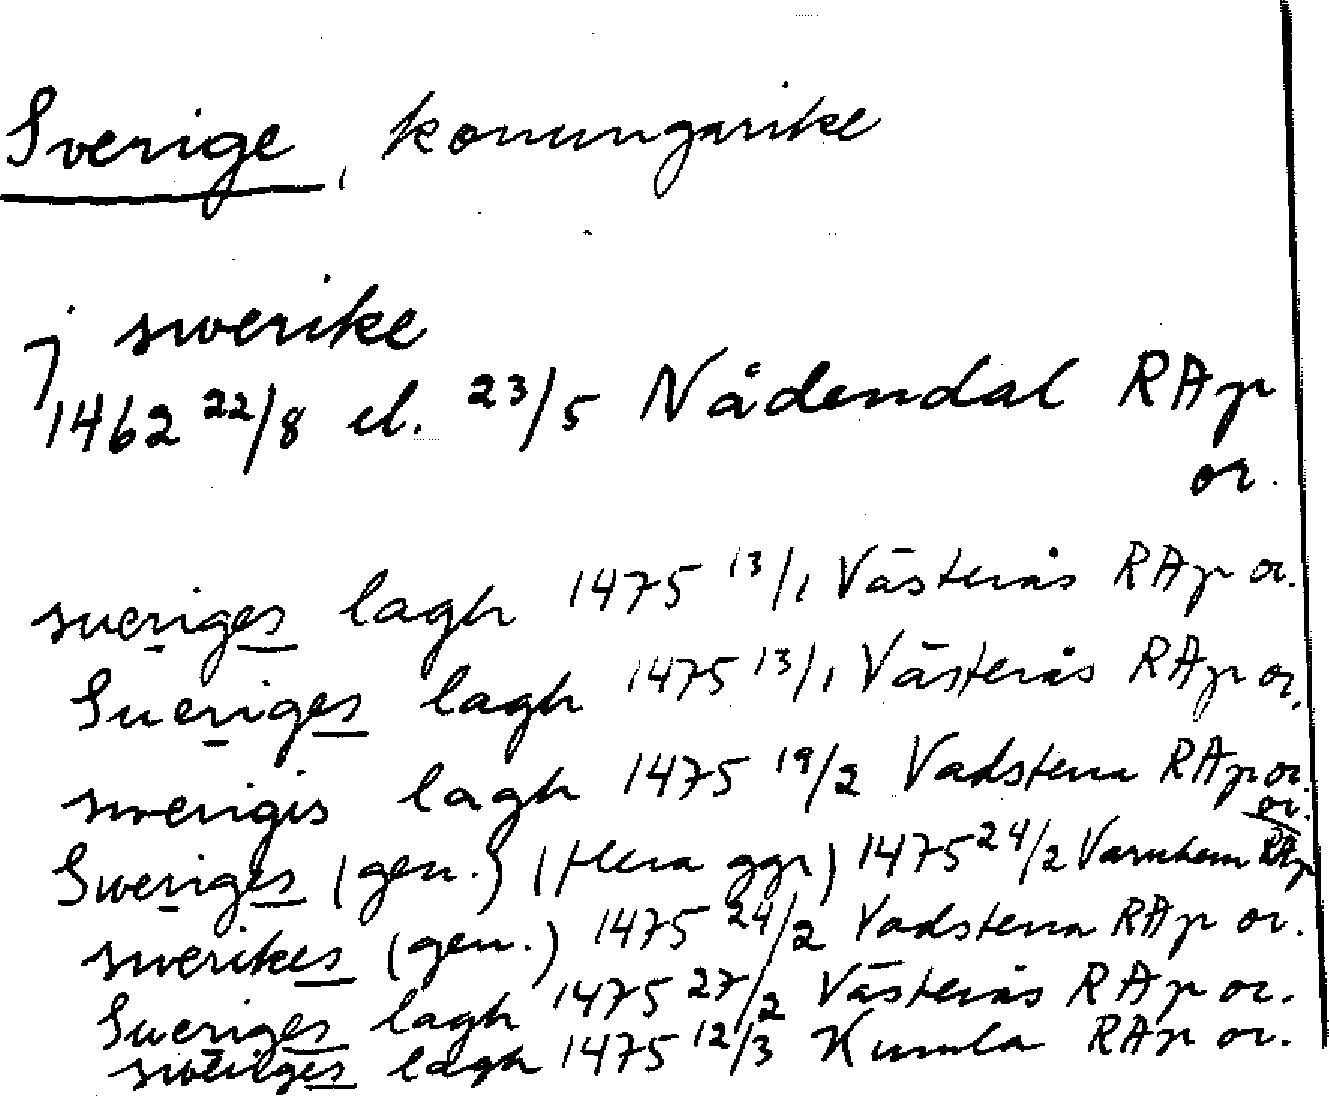 Sverige, konungarike
j swerike
1462 22/8 el. 23/5 Nådendal RAp
or.
sueriges lagh 1475 13/1 Västerås RAp or.
Sueriges lagh 1475 13/1 Västerås RAp or.
swerigis lagh 1475 19/2 Vadstena RAp or.
Sweriges (gen.) (flera ggr) 1475 24/2 Varnhem RAp or.
swerikes (gen.) 1475 24/2 Vadstena RAp or.
Sueriges lagh 1475 27/2 Västerås RAp or.
lagh 1475 12/3 Kumla RAp or.